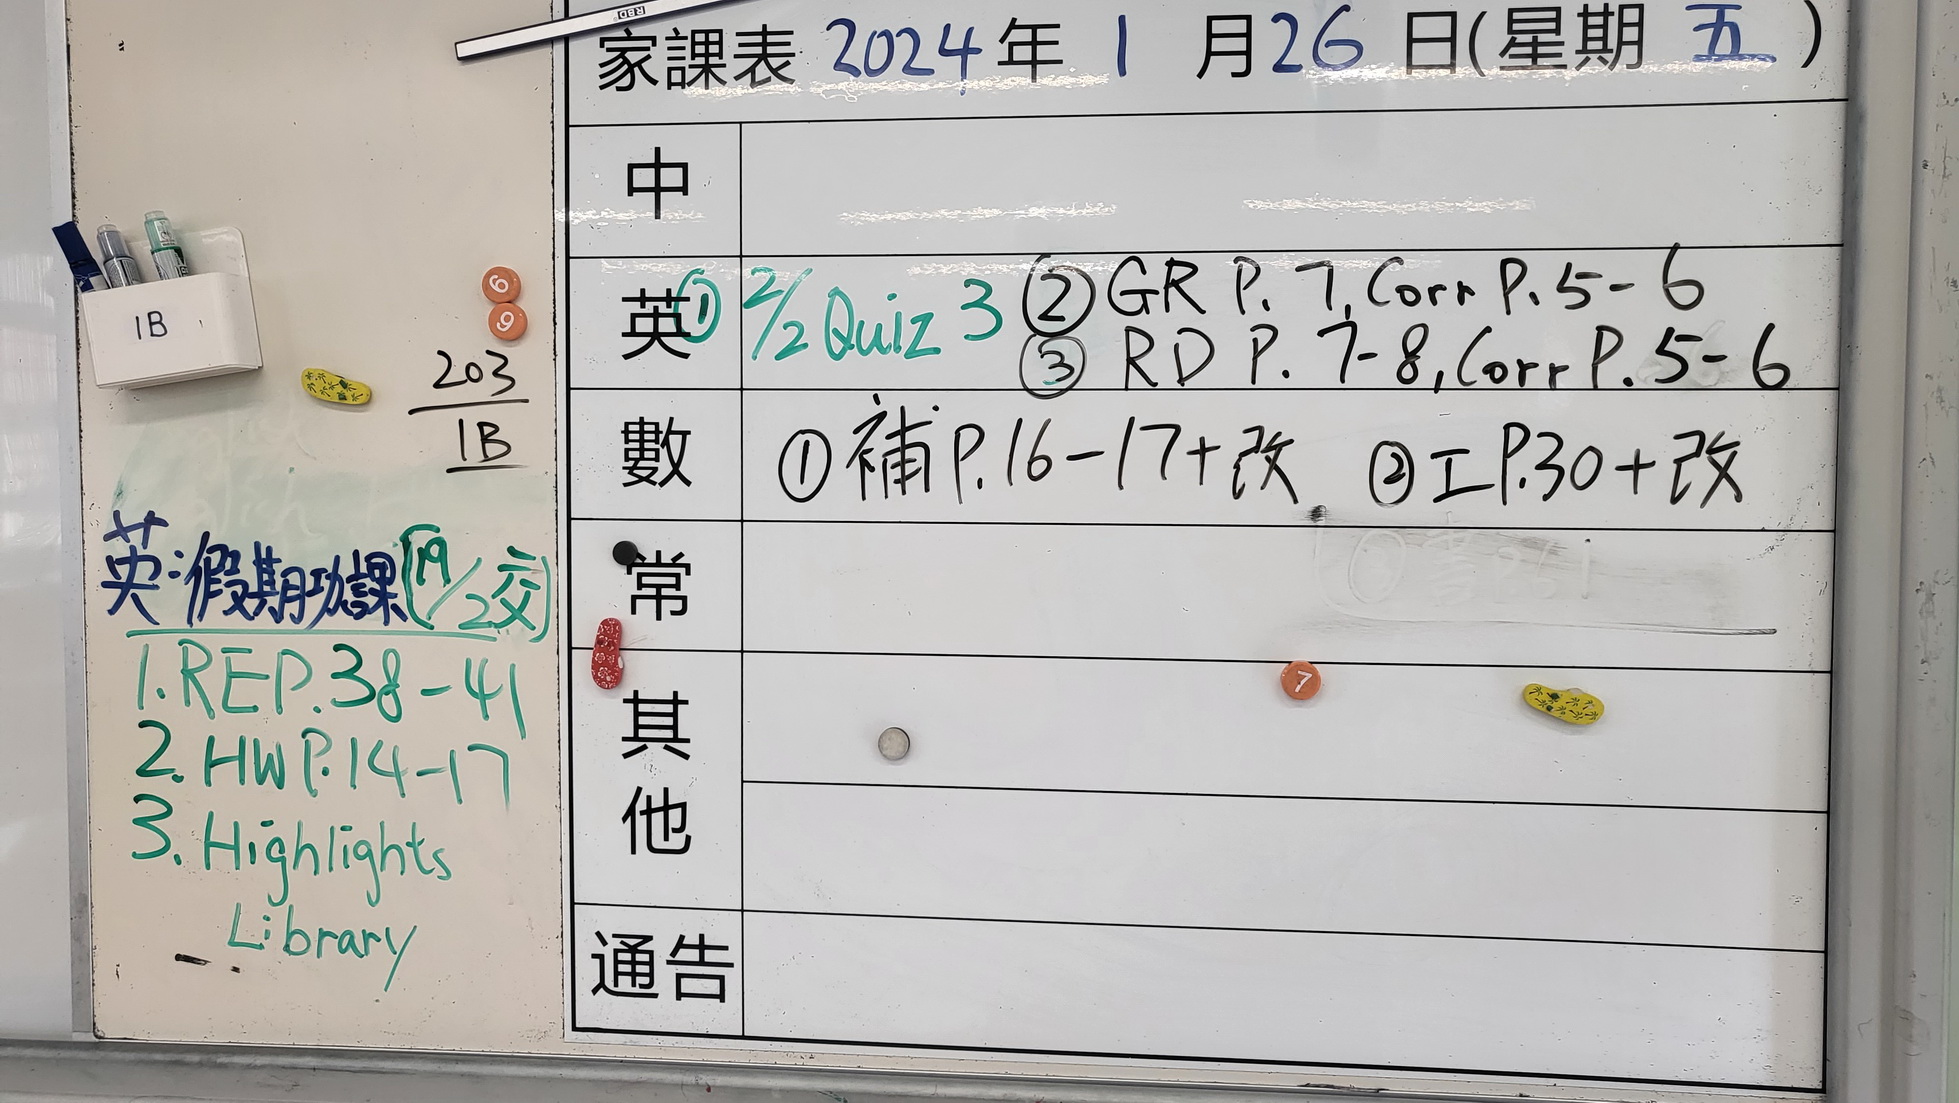 RBD
家課表 2024年 1 月26 日(星期 五 )
中
英 ① 2/2 Quiz 3 ② GR P. 7, Corr P. 5-6
③ RD P. 7-8, Corr P. 5-6
數 ① 補 P.16-17+改 ② 工 P.30+改
常
其他
7
通告
1B
6
9
203
1B
英:假期功課(19/2交)
1. RE P. 38-41
2. HW P. 14-17
3. Highlights
Library